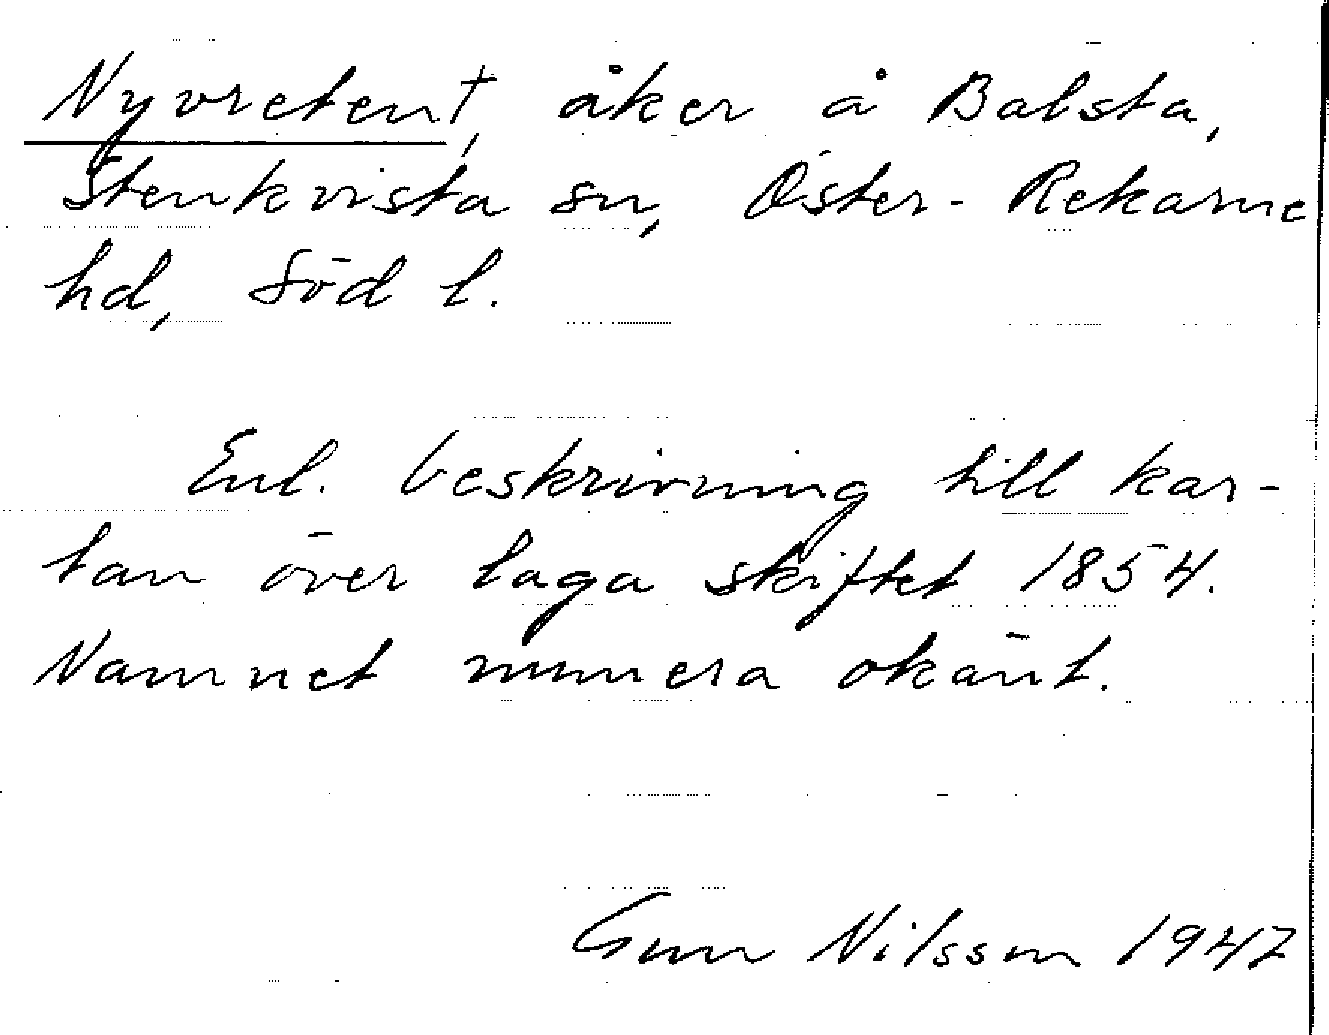 Nyvreten†, åker å Balsta,
Stenkvista sn, Öster-Rekarne
hd, Söd l.
Enl. beskrivning till kar-
tan över laga skiftet 1854.
Namnet numera okänt.
Gun Nilsson 1947